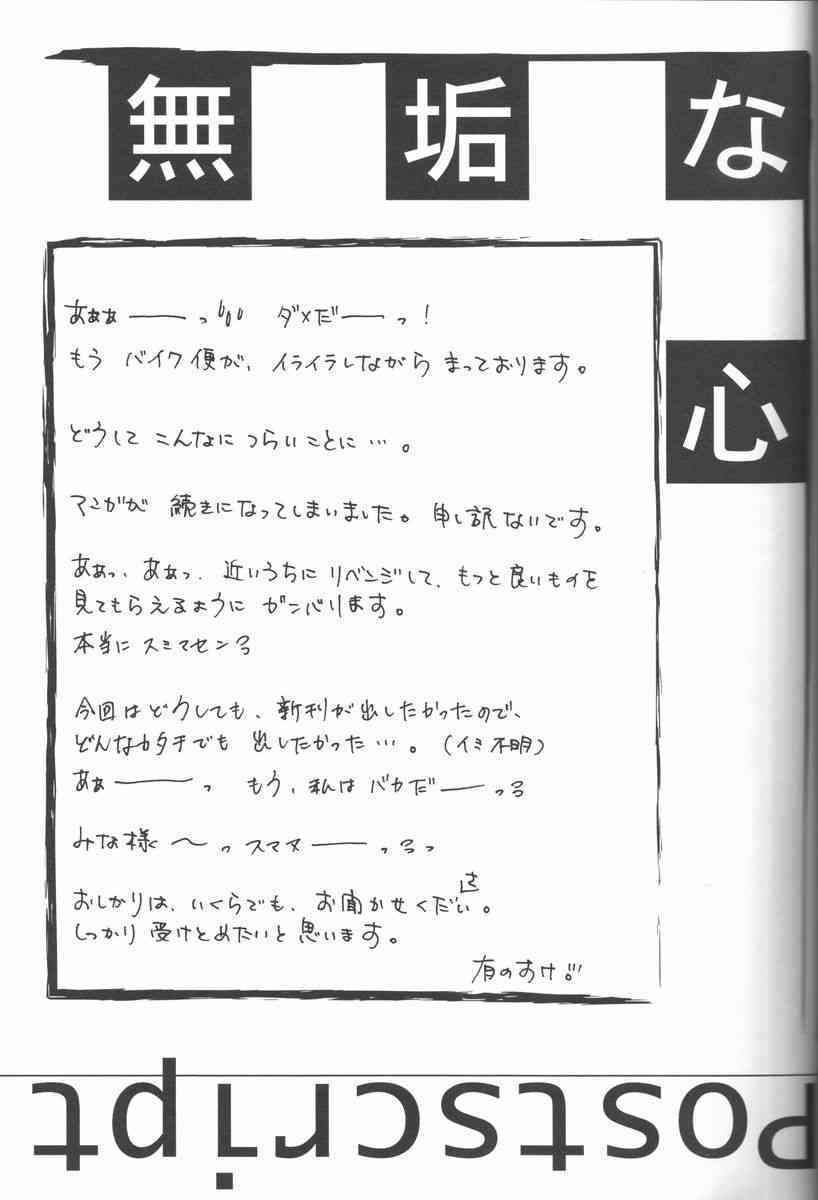 無垢な
心
あぁぁ――っ ダメだ――っ！
もう バイク便が、イライラしながら まっております。
どうして こんなに つらいことに…。
マンガが 続きになってしまいました。申し訳ないです。
あぁっ、あぁっ、近いうちに リベンジして、もっと良いものを
見てもらえるように ガンバリます。
本当に スミマセンっ
今回は どうしても、新刊が出したかったので、
どんなカタチでも 出したかった…。（イミ不明）
あぁ――っ もう、私は バカだ――っ
みな様～っ スマヌ――っ
おしかりは、いくらでも、お聞かせください。
しっかり 受けとめたいと 思います。
有のすけ
Postscript